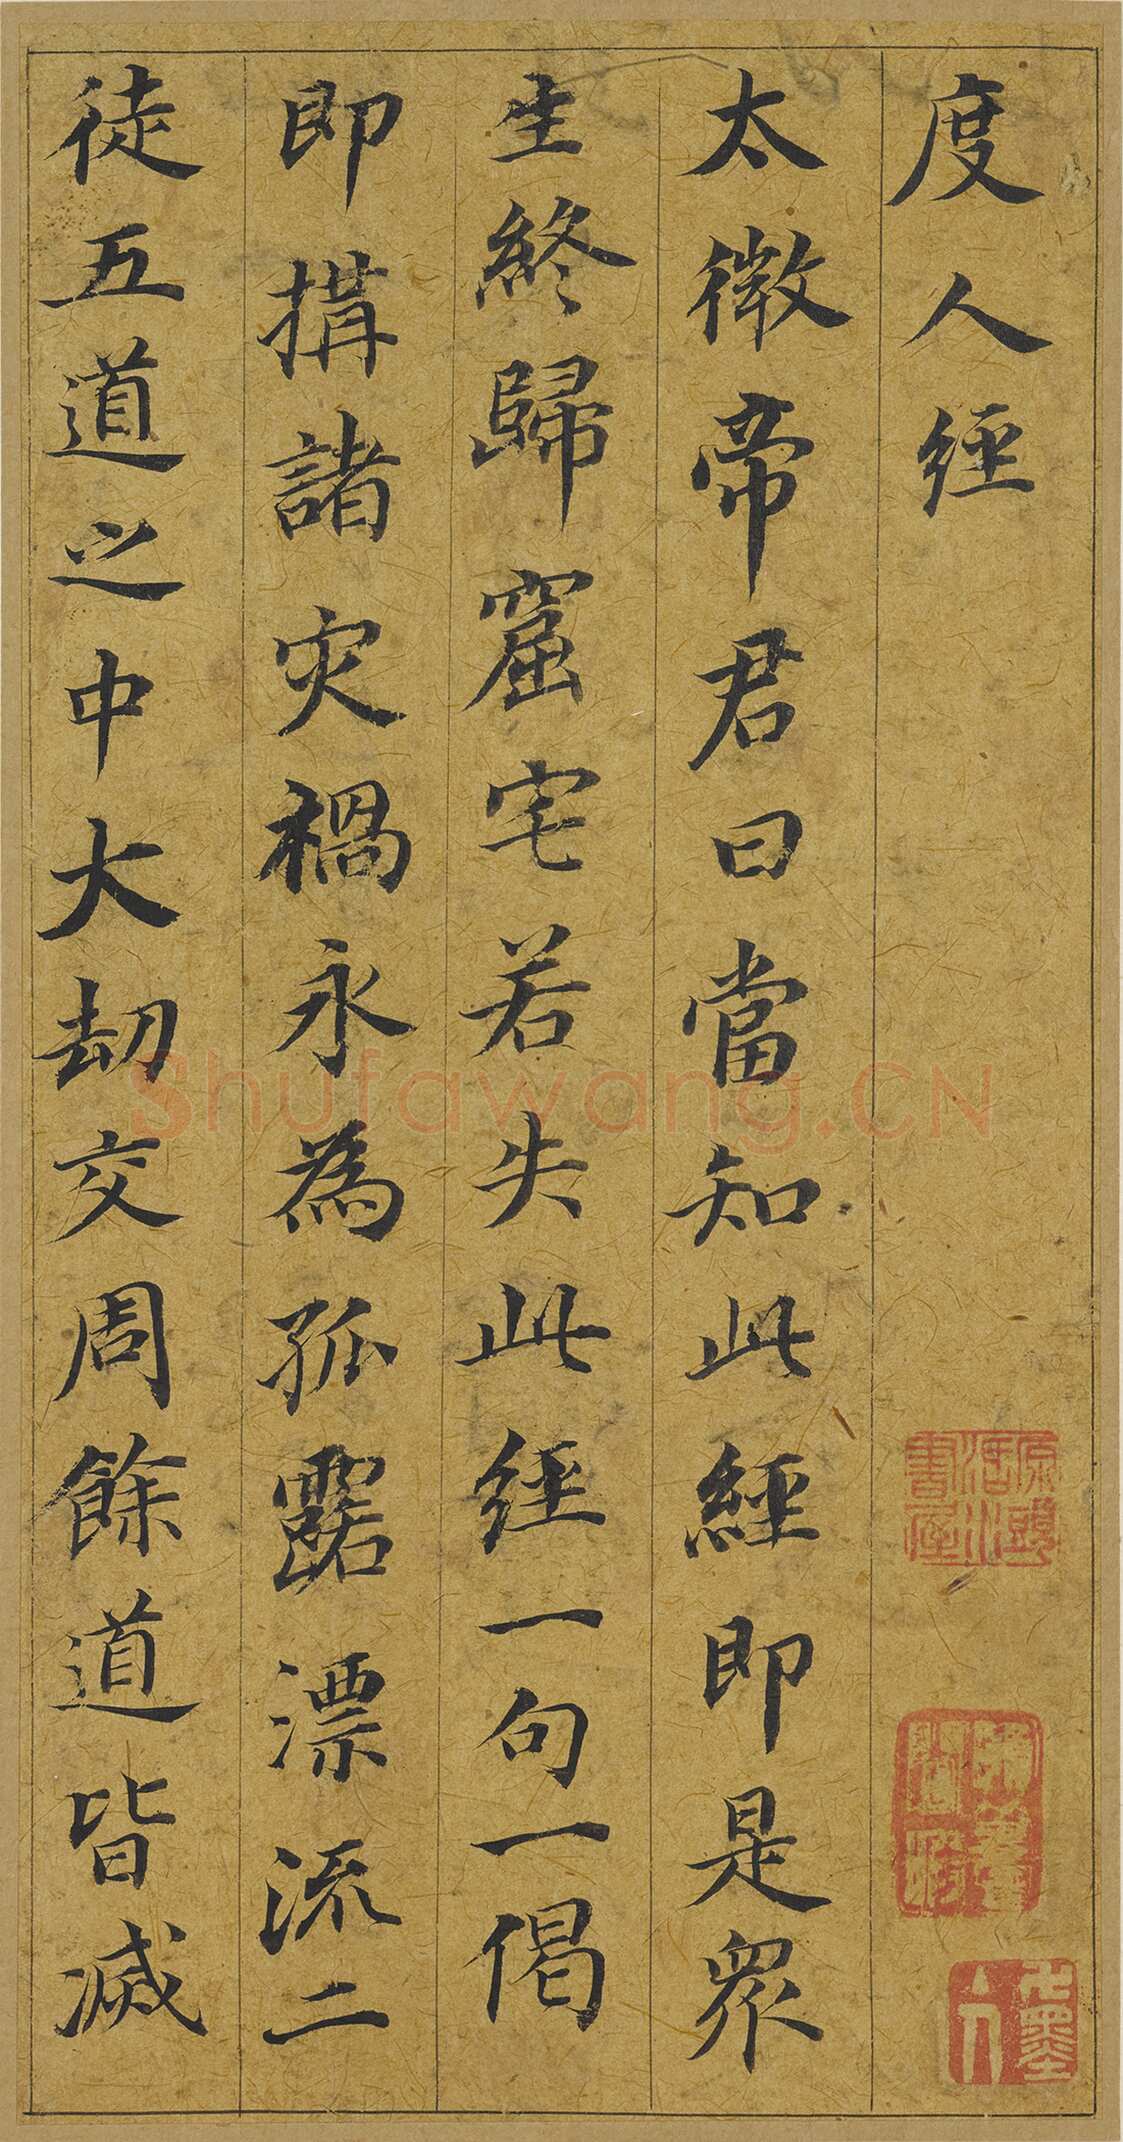 度人經
太微帝君曰當知此經即是眾
生終歸窟宅若失此經一句一偈
即搆諸灾禍永為孤露漂流二
徒五道之中大劫交周餘道皆滅
Shufawang.CN